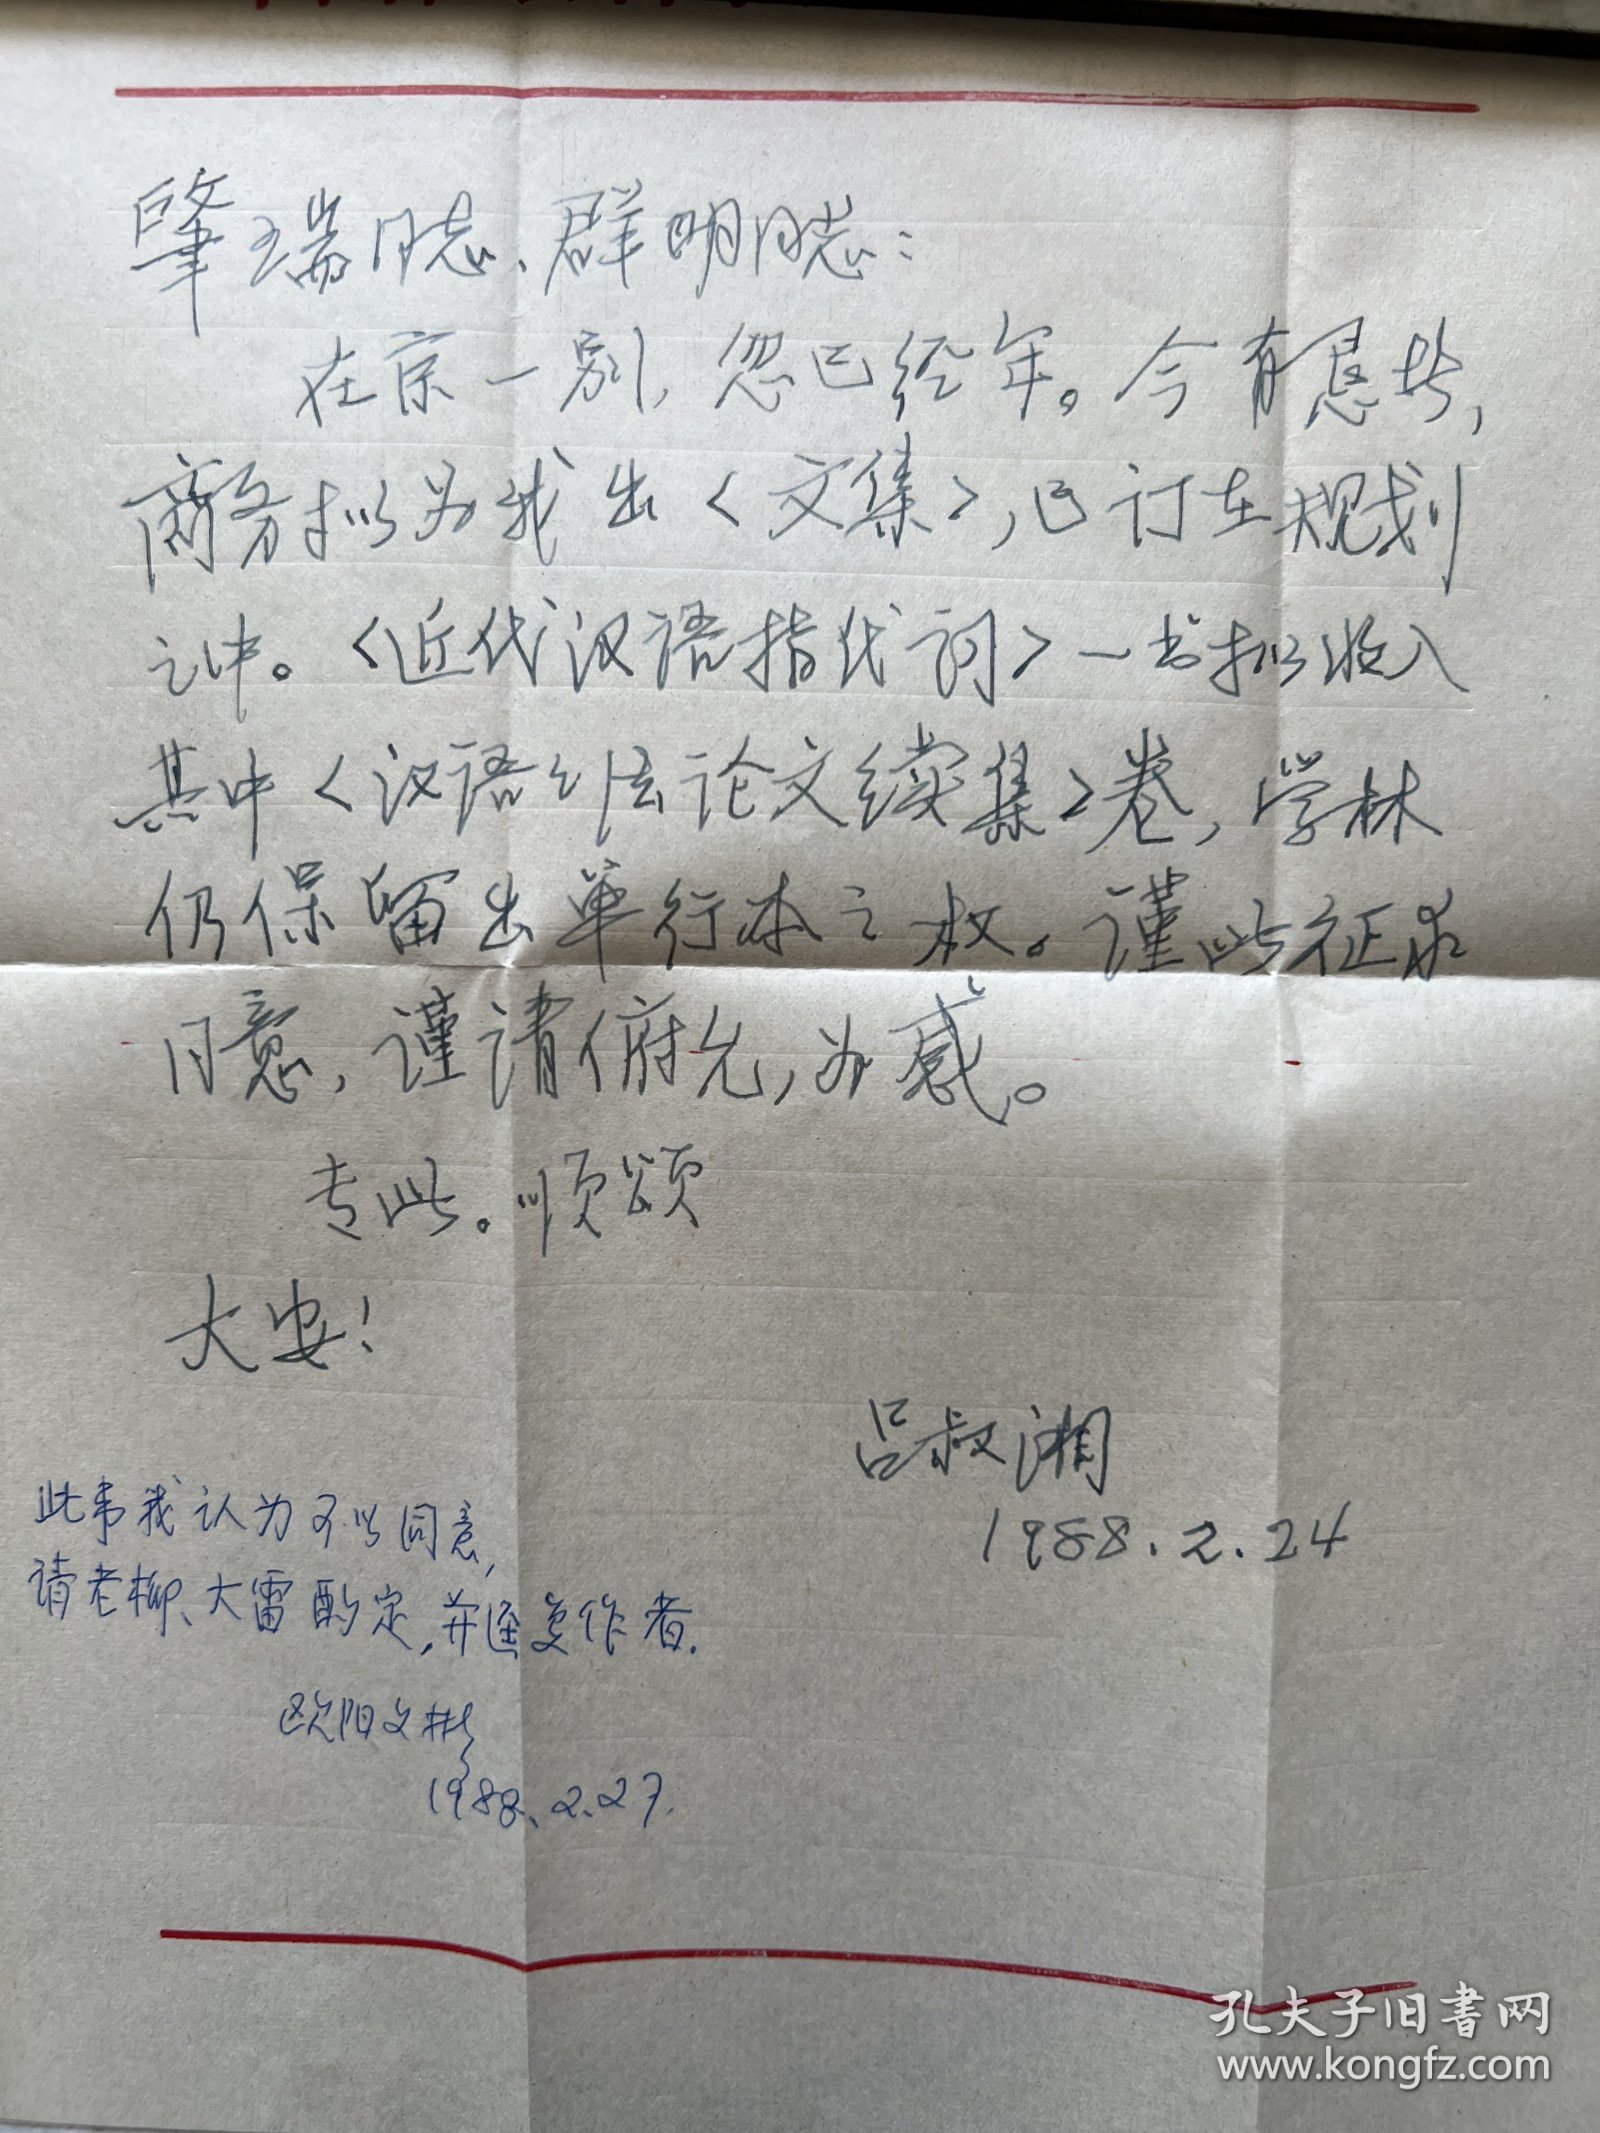 肇瑞同志、群明同志：
在京一别，忽已经年。今有恳者，
商务拟为我出《文集》，已订在规划
之中。《近代汉语指代词》一书拟收入
其中《汉语语法论文续集》卷，学林
仍保留出单行本之权。谨此征求
同意，谨请俯允，为感。
专此。顺颂
大安！
吕叔湘
1988.2.24
此事我认为可以同意，
请老柳、大雷酌定，并迳复作者.
欧阳文彬
1988.2.27.
孔夫子旧书网
www.kongfz.com